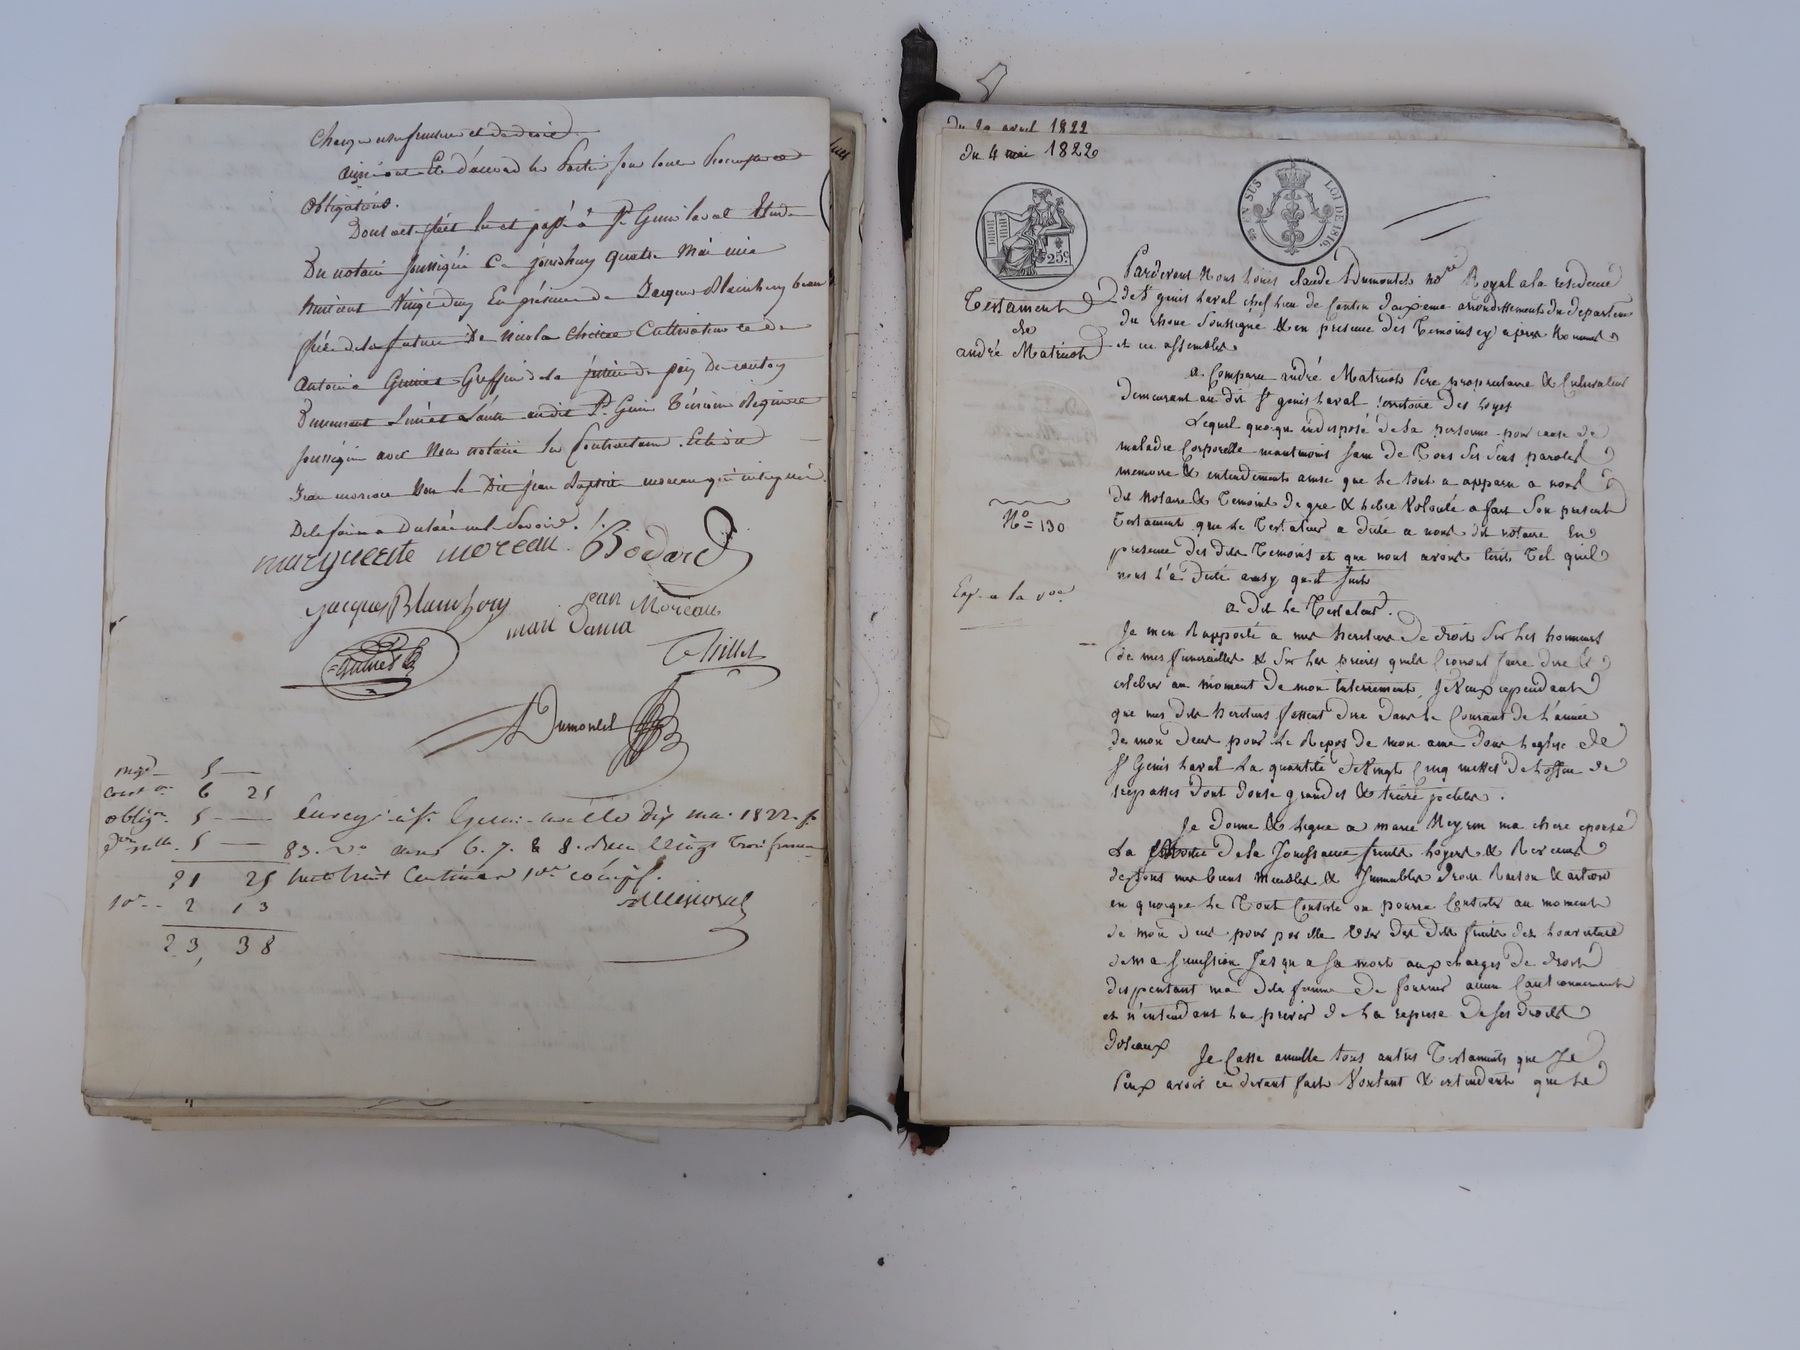 charge usufruitière et de droit.
ainsi ont été d'accord les Parties sous leurs Promesses et
obligations.
Dont acte fait lu et passé à St. Genis laval Etude
Du notaire soussigné Ce jourd'huy quatre Mai mil
huit cent Vingt deux En présence de Jacques Blanchery beau
frère de la future De Nicolas Cultivateur et de
antoine Greffier de la justice de paix De canton
Demeurant audit St. Genis Témoins Requis
soussignés avec Nous notaire les Contractans.
Jean moreau Non le Dit jean Baptiste moreau qui interpellé
De le faire a Déclaré ne le Savoir ./.
marguerite moreau. Bodard
Jacques Blanchery jean Moreau
mari Dama
Thillet
Dumontel
mge 5 —
const on 6 25
oblign. 5 —
5 —
21 25
10e 2 13
23, 38
Enregé à St. Genis le dix mai 1822. f°
83. Vo cases 6. 7. & 8. Reçu Vingt Trois francs
trente huit Centimes 10e compris.
du 30 avril 1822
du 4 mai 1822
25c
EN SUS
LOI DE 1816.
Testament
de
andré Matrion
No = 130
Exp. a la vve
Pardevant Nous Louis Claude Dumontel nore Royal a la résidence
de St genis Laval chef Lieu de Canton deuxieme arrondissement du departem
du Rhone Soussigné & en presence des Temoins cy apres Nommés
et cc assemblés
a Comparu andré Matrion Pere proprietaire & Cultivateur
demeurant au dit St genis Laval territoire des hoyes
Lequel quoique indisposé de sa personne pour cause de
maladie Corporelle neantmoins sain de Tous Ses Sens parole
memoire & entendement ainsi que Le tout a apparu a nous
dit Notaire & Temoins de gré & Libre Volonté a fait Son present
Testament que Le Testateur a dicté a nous dit notaire En
presence des dits Temoins et que nous avons Ecrit Tel quil
nous L'a dicté ainsy quil suit
a dit Le Testateur.
Je m'en Rapporte a mes heritiers de droit Sur Les honneurs
de mes funerailles & Sur Les prieres quils feront faire dire &
celebrer au moment de mon Enterrement, Je Veux cependant
que mes dits heritiers fassent dire dans Le Courant de L'année
de mon deces pour Le Repos de mon ame dans Leglise de
St Genis Laval La quantité de Vingt Cinq messes de Loffice de
trepassés dont douse grandes & treise petites.
Je Donne & Legue a marie Meyrin ma chere epouse
La de La Jouissance fruits Loyers & Revenus
de tous mes biens Meubles & Immeubles droits Raison & actions
en quoique Le Tout Consiste ou pourra Consister au moment
de mon deces pour par elle User des dits fruits des Louverture
de ma Succession Jusqu a Sa mort aux charges de droit
dispensant ma dite femme de fournir aucun Cautionnement
et n'entendant La priver de La reprise de Ses droits
dotaux
Je Casse annulle tous autres Testaments que Je
Peux avoir ci devant faits Voulant & entendant que Le